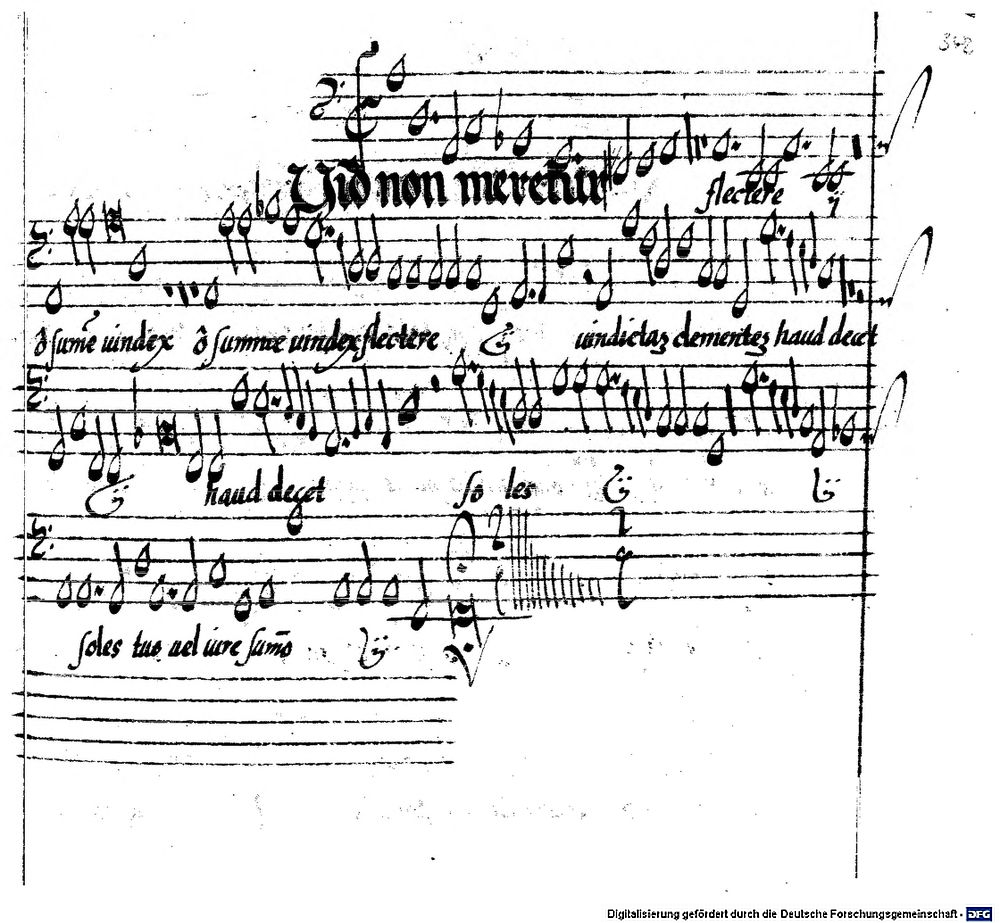 342
Uid non meretur
flectere ij
ô sum̃e uindex ô summe uindex flectere ij uindictaʒ clementeʒ haud decet
ij haud decet so les ij ij
soles tuo uel iure sum̃o ij
Digitalisierung gefördert durch die Deutsche Forschungsgemeinschaft - DFG